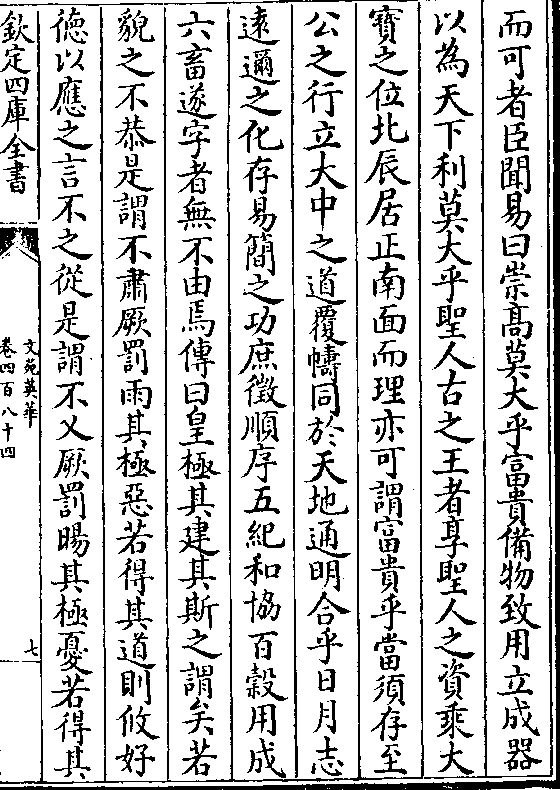 而可者臣聞易曰崇髙莫大乎富貴備物致用立成器
以為天下利莫大乎聖人古之王者享聖人之資乘大
寳之位北辰居正南面而理亦可謂富貴乎當須存至
公之行立大中之道覆幬同於天地通明合乎日月志
逺邇之化存易簡之功庶徴順序五紀和協百穀用成
六畜遂字者無不由焉傳曰皇極其建其斯之謂矣若
貌之不恭是謂不肅厥罰雨其極惡若得其道則攸好
徳以應之言不之從是謂不乂厥罰暘其極憂若得其
欽定四庫全書
文苑英華
卷四百八十四
七